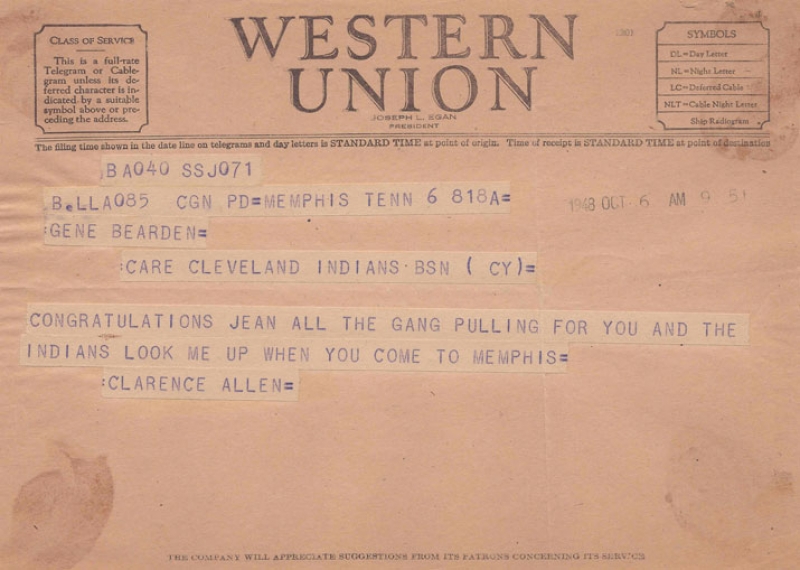 CLASS OF SERVICE
This is a full-rate
Telegram or Cable-
gram unless its de-
ferred character is in-
dicated by a suitable
symbol above or pre-
ceding the address.
WESTERN
UNION
JOSEPH L. EGAN
PRESIDENT
SYMBOLS
DL=Day Letter
NL=Night Letter
LC=Deferred Cable
NLT=Cable Night Letter
Ship Radiogram
The filing time shown in the date line on telegrams and day letters is STANDARD TIME at point of origin. Time of receipt is STANDARD TIME at point of destination
BA040 SSJ071
B.LLA085 CGN PD=MEMPHIS TENN 6 818A=
1948 OCT 6 AM 9 51
:GENE BEARDEN=
:CARE CLEVELAND INDIANS BSN ( CY)=
CONGRATULATIONS JEAN ALL THE GANG PULLING FOR YOU AND THE
INDIANS LOOK ME UP WHEN YOU COME TO MEMPHIS=
:CLARENCE ALLEN=
THE COMPANY WILL APPRECIATE SUGGESTIONS FROM ITS PATRONS CONCERNING ITS SERVICE